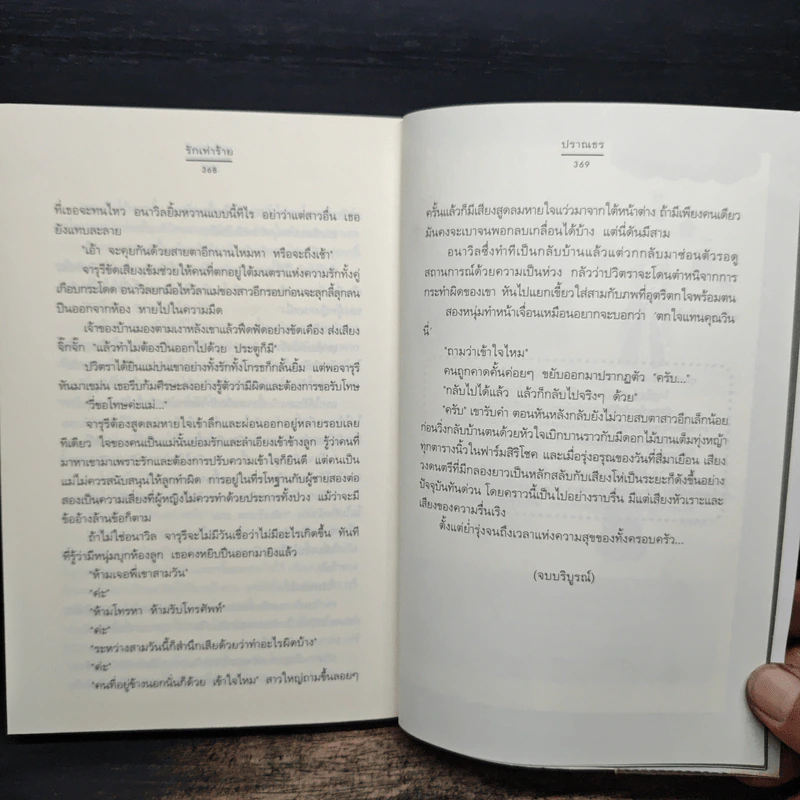 รักเท่าร้าย
368
ที่เธอจะทนไหว อนาวิลยิ้มหวานแบบนี้ทีไร อย่าว่าแต่สาวอื่น เธอ
ยังแทบละลาย
"เอ้า จะคุยกันด้วยสายตาอีกนานไหมหา หรือจะถึงเช้า"
จารุรีขัดเสียงเข้มช่วยให้คนที่ตกอยู่ใต้มนตราแห่งความรักทั้งคู่
เกือบกระโดด อนาวิลยกมือไหว้ลาแม่ของสาวอีกรอบก่อนจะลุกลี้ลุกลน
ปีนออกจากห้อง หายไปในความมืด
เจ้าของบ้านมองตามเงาหลังเขาแล้วฟึดฟัดอย่างขัดเคือง ส่งเสียง
จิ๊กจั๊ก "แล้วทำไมต้องปีนออกไปด้วย ประตูก็มี"
ปวิตราได้ยินแม่บ่นเขาอย่างทั้งรักทั้งโกรธก็กลั้นยิ้ม แต่พอจารุรี
หันมาเขม่น เธอรีบก้มศีรษะลงอย่างรู้ตัวว่ามีผิดและต้องการขอรับโทษ
"วี่ขอโทษค่ะแม่..."
จารุรีต้องสูดลมหายใจเข้าลึกและผ่อนออกอยู่หลายรอบเลย
ทีเดียว ใจของคนเป็นแม่นั้นย่อมรักและลำเอียงเข้าข้างลูก รู้ว่าคนที่
มาหาเขามาเพราะรักและต้องการปรับความเข้าใจก็ยินดี แต่คนเป็น
แม่ไม่ควรสนับสนุนให้ลูกทำผิด การอยู่ในที่รโหฐานกับผู้ชายสองต่อ
สองเป็นความเสี่ยงที่ผู้หญิงไม่ควรทำด้วยประการทั้งปวง แม้ว่าจะมี
ข้ออ้างล้านข้อก็ตาม
ถ้าไม่ใช่อนาวิล จารุรีจะไม่มีวันเชื่อว่าไม่มีอะไรเกิดขึ้น ทันที
ที่รู้ว่ามีหนุ่มบุกห้องลูก เธอคงหยิบปืนออกมายิงแล้ว
"ห้ามเจอพี่เขาสามวัน"
"ค่ะ"
"ห้ามโทรหา ห้ามรับโทรศัพท์"
"ค่ะ"
"ระหว่างสามวันนี้ก็สำนึกเสียด้วยว่าทำอะไรผิดบ้าง"
"ค่ะ"
"คนที่อยู่ข้างนอกนั่นก็ด้วย เข้าใจไหม" สาวใหญ่ถามขึ้นลอยๆ
ปราณธร
369
ครั้นแล้วก็มีเสียงสูดลมหายใจแว่วมาจากใต้หน้าต่าง ถ้ามีเพียงคนเดียว
มันคงจะเบาจนพอกลบเกลื่อนได้บ้าง แต่นี่ดันมีสาม
อนาวิลซึ่งทำทีเป็นกลับบ้านแล้วแต่วกกลับมาซ่อนตัวรอดู
สถานการณ์ด้วยความเป็นห่วง กลัวว่าปวิตราจะโดนตำหนิจากการ
กระทำผิดของเขา หันไปแยกเขี้ยวใส่สามกับภพที่อุตริตกใจพร้อมตน
สองหนุ่มทำหน้าเจื่อนเหมือนอยากจะบอกว่า 'ตกใจแทนคุณวิน
นี่'
"ถามว่าเข้าใจไหม"
คนถูกคาดคั้นค่อยๆ ขยับออกมาปรากฏตัว "ครับ..."
"กลับไปได้แล้ว แล้วก็กลับไปจริงๆ ด้วย"
"ครับ" เขารับคำ ตอนหันหลังกลับยังไม่วายสบตาสาวอีกเล็กน้อย
ก่อนวิ่งกลับบ้านตนด้วยหัวใจเบิกบานราวกับมีดอกไม้บานเต็มทุ่งหญ้า
ทุกตารางนิ้วในฟาร์มสิริโชค และเมื่อรุ่งอรุณของวันที่สี่มาเยือน เสียง
วงดนตรีที่มีกลองยาวเป็นหลักสลับกับเสียงโห่เป็นระยะก็ดังขึ้นอย่าง
ปัจจุบันทันด่วน โดยคราวนี้เป็นไปอย่างราบรื่น มีแต่เสียงหัวเราะและ
เสียงของความรื่นเริง
ตั้งแต่ย่ำรุ่งจนถึงเวลาแห่งความสุขของทั้งครอบครัว...
(จบบริบูรณ์)